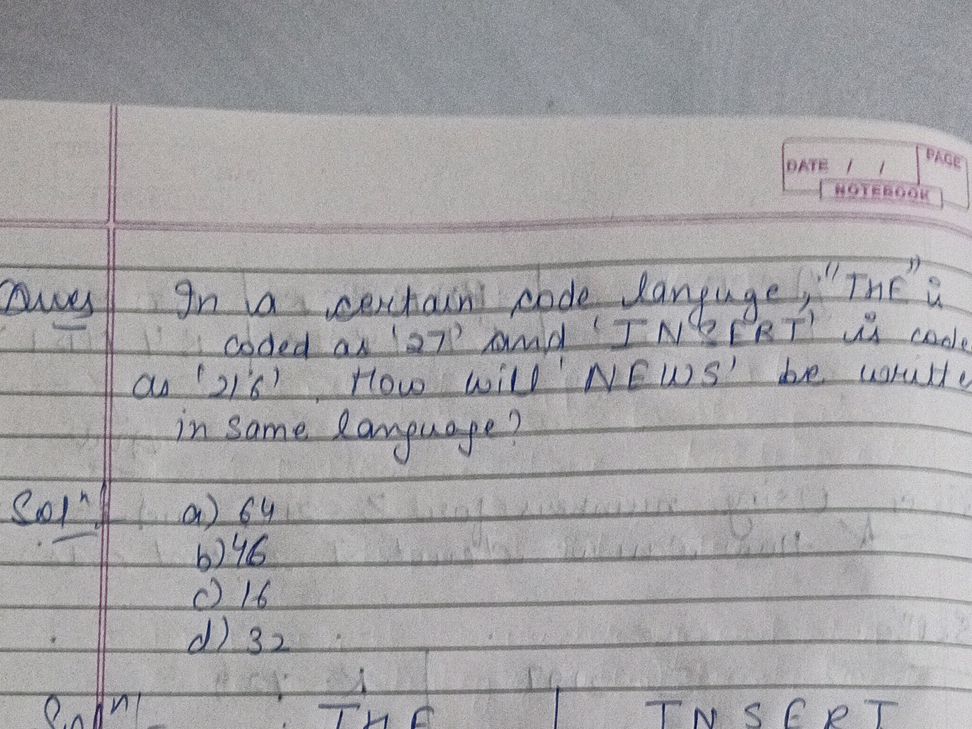 DATE / /
PAGE
NOTEBOOK
Ques In a certain code languge, "THE" is
coded as '27' and 'INSERT' is code
as '216'. How will 'NEWS' be writte
in same language?
Solⁿ a) 64
b) 46
c) 16
d) 32
Solⁿ THE | INSERT